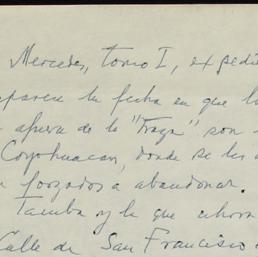 Mercedes, tomo I, expedie
aparece la fecha en que la
afuera de la "Traza" son
Coyohuacan, donde se les
forzados a abandonar.
Tacuba y la que ahora
Calle de San Francisco